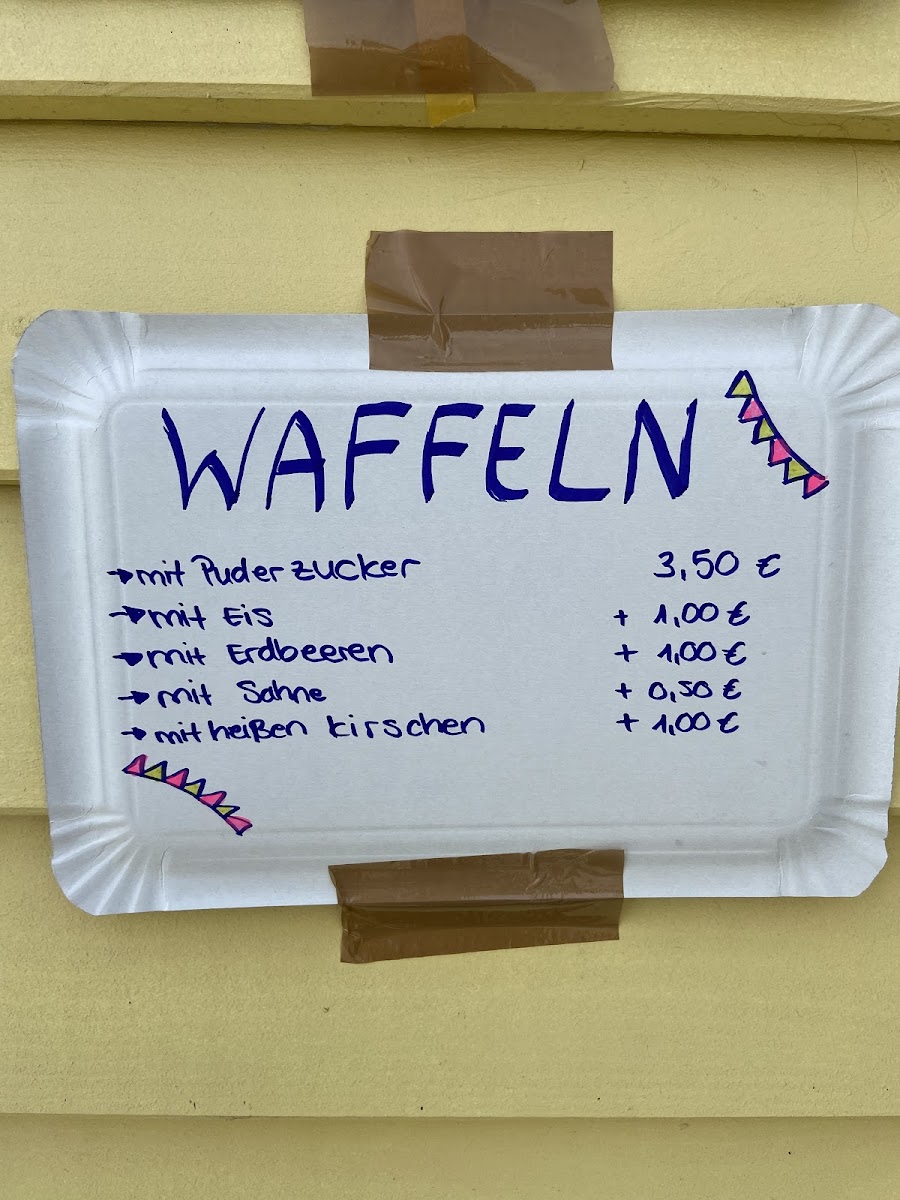 WAFFELN
→ mit Puderzucker 3,50 €
→ mit Eis + 1,00 €
→ mit Erdbeeren + 1,00 €
→ mit Sahne + 0,50 €
→ mit heißen Kirschen + 1,00 €